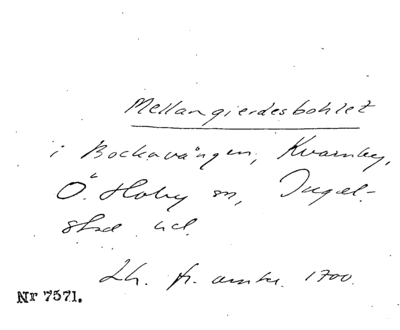 Mellangierdesbohlet
i Bockavången, Kvarnby,
Ö. Hoby sn, Ingel-
stad hd.
Lh. fr. omkr. 1700.
Nr 7571.